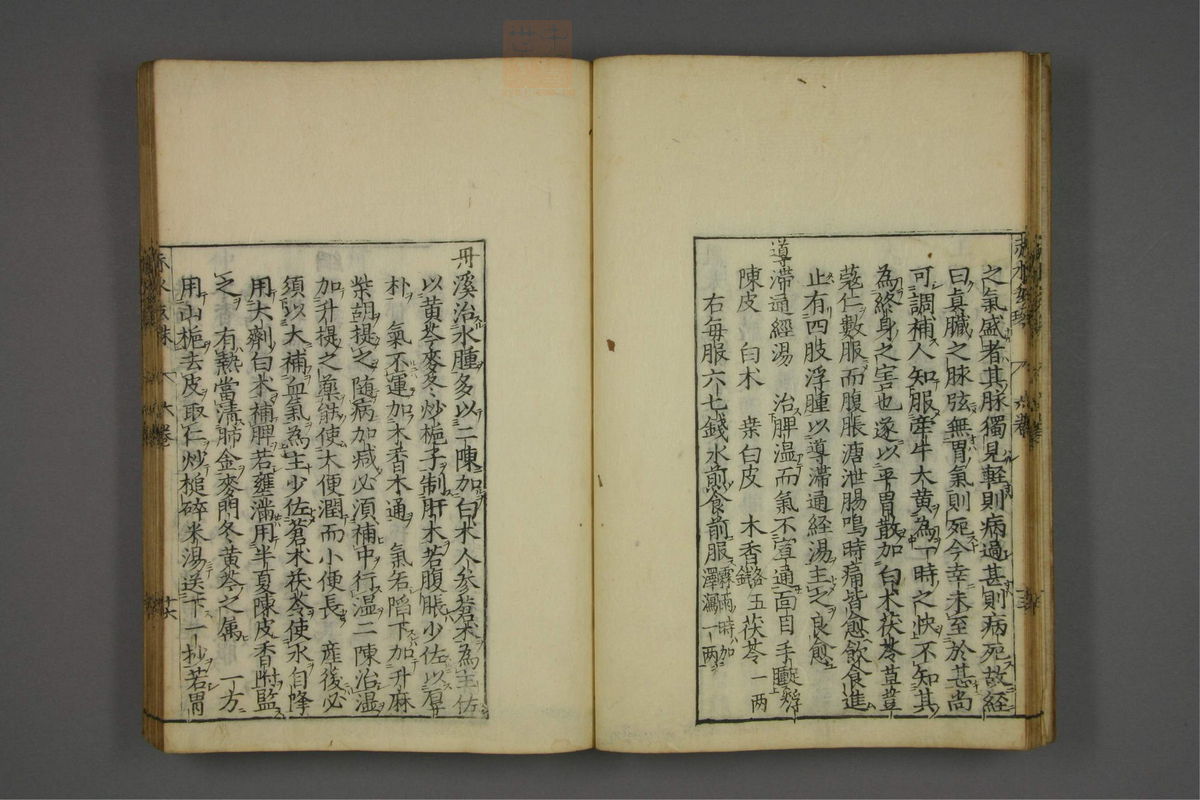 之氣盛者其脉獨見輕則病過甚則病死故經
曰真臟之脉弦無胃氣則死今幸未至於甚尚
可調補人知服牽牛大黄為一時之快不知其
為終身之害也遂以平胃散加白朮茯苓草荳
蔻仁數服而腹脹溏泄腸鳴時痛皆愈飲食進
止有四肢浮腫以導滯通經湯主之良愈
導滯通經湯 治脾湿而氣不宣通面目手足浮腫
陳皮 白朮 桒白皮 木香各五錢茯苓一两
右每服六七錢水煎食前服霖雨時加澤瀉一两
丹溪治水腫多以二陳加白朮人參蒼朮為主佐
以黄芩麥冬炒梔子制肝木若腹脹少佐以厚
朴 氣不運加木香木通 氣若陷下加升麻
柴胡提之随病加减必須補中行湿二陳治湿
加升提之藥能使大便潤而小便長 産後必
須以大補血氣為主少佐蒼朮茯苓使水自降
用大劑白朮補脾若壅滿用半夏陳皮香附監
之 有熱當清肺金麥門冬黄芩之属 一方
用山梔去皮取仁炒槌碎米湯送下一抄若胃
六卷